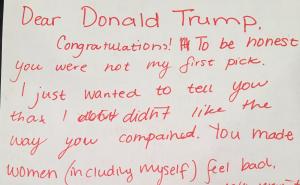 Dear Donald Trump,
Congratulations! To be honest
you were not my first pick.
I just wanted to tell you
that I didn't like the
way you compained. You made
women (including myself) feel bad.